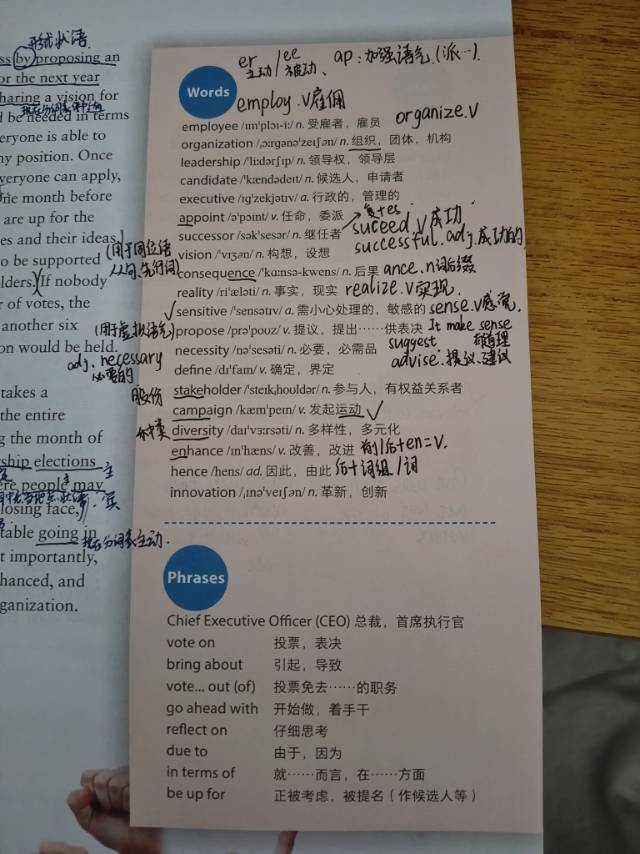 形式状语
ss by proposing an
or the next year
sharing a vision for
d be needed in terms
veryone is able to
ny position. Once
veryone can apply,
ne month before
are up for the
es and their ideas
o be supported
lders. If nobody
r of votes, the
another six
on would be held.
takes a
the entire
g the month of
rship elections
ere people may
losing face,
table going in
t importantly,
hanced, and
ganization.
er 主动 / ee 被动、 ap:加强语气(派…)
Words
employ.v雇佣
employee /ɪmˈplɔɪ-iː/ n. 受雇者，雇员
organize.v
organization /ˌɔːrɡənəˈzeɪʃən/ n. 组织，团体，机构
leadership /ˈliːdərʃɪp/ n. 领导权，领导层
candidate /ˈkændədeɪt/ n. 候选人，申请者
executive /ɪɡˈzekjətɪv/ a. 行政的，管理的
appoint /əˈpɔɪnt/ v. 任命，委派
successor /səkˈsesər/ n. 继任者
suceed.v成功
successful.adj.成功的
vision /ˈvɪʒən/ n. 构想，设想
(用于同位语
从句,先行词)
consequence /ˈkɑːnsə-kwens/ n. 后果 ance.n词后缀
reality /riˈæləti/ n. 事实，现实 realize.v实现.
sensitive /ˈsensətɪv/ a. 需小心处理的，敏感的 sense.v感觉.
(用于虚拟语气)
propose /prəˈpoʊz/ v. 提议，提出……供表决 It make sense
有道理
necessity /nəˈsesəti/ n. 必要，必需品 suggest
adj. necessary
必要的
define /dɪˈfaɪn/ v. 确定，界定 advise.提议.建议
股份 stakeholder /ˈsteɪkˌhoʊldər/ n. 参与人，有权益关系者
campaign /kæmˈpeɪn/ v. 发起运动
diversity /daɪˈvɜːrsəti/ n. 多样性，多元化
enhance /ɪnˈhæns/ v. 改善，改进 前/后+en=v.
hence /hens/ ad. 因此，由此 后+词组/词
innovation /ˌɪnəˈveɪʃən/ n. 革新，创新
Phrases
Chief Executive Officer (CEO) 总裁，首席执行官
vote on 投票，表决
bring about 引起，导致
vote... out (of) 投票免去……的职务
go ahead with 开始做，着手干
reflect on 仔细思考
due to 由于，因为
in terms of 就……而言，在……方面
be up for 正被考虑，被提名（作候选人等）